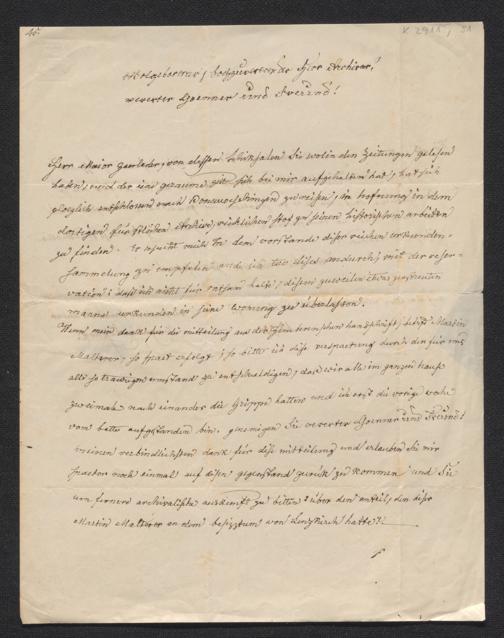 45
X 2911, 31
Hochverehrter Herr Archivar!
werter Goenner und Freund!
Herr Maior von dessen Schiksalen Sie wol in den Zeitungen gelesen
haben, und der eine geraume Zeit sich bei mir aufgehalten hat, hat sich
ploezlich entschlossen nach Donaueschingen zu reisen, in der hofnung in dem
dortigen fürstlichen Archive, reichlichen stof zu seinen historischen arbeiten
zu finden. Er ersucht mich in dem vorstande diser reichen urkunden-
sammlung zu empfelen und ich tue dises hiedurch, mit der reser-
vation, daß ich nicht für ratsam halte, disem zuweilen etwas zerstreuten
manne urkunden in seine wonung zu überlassen.
Wenn mein dank für die mitteilung aus der handschrift, betrift Martin
Malterer, so spaet erfolgt, so bitte ich dise verspaetung durch den für uns
alle so traurigen umstand zu entschuldigen, daß wir alle im ganzen hause
zweimal nach einander die Grippe hatten und ich erst die vorige woche
vom bette aufgestanden bin. genemigen Sie werter Goenner und Freund!
meinen verbindlichsten dank für dise mitteilung und erlauben Sie mir
spaeter noch einmal auf disen gegenstand zurük zu kommen und Sie
um fernere archivalische auskunft zu bitten über den anteil, den diser
Martin Malterer an dem besiztum von Lenzkirch hatte.